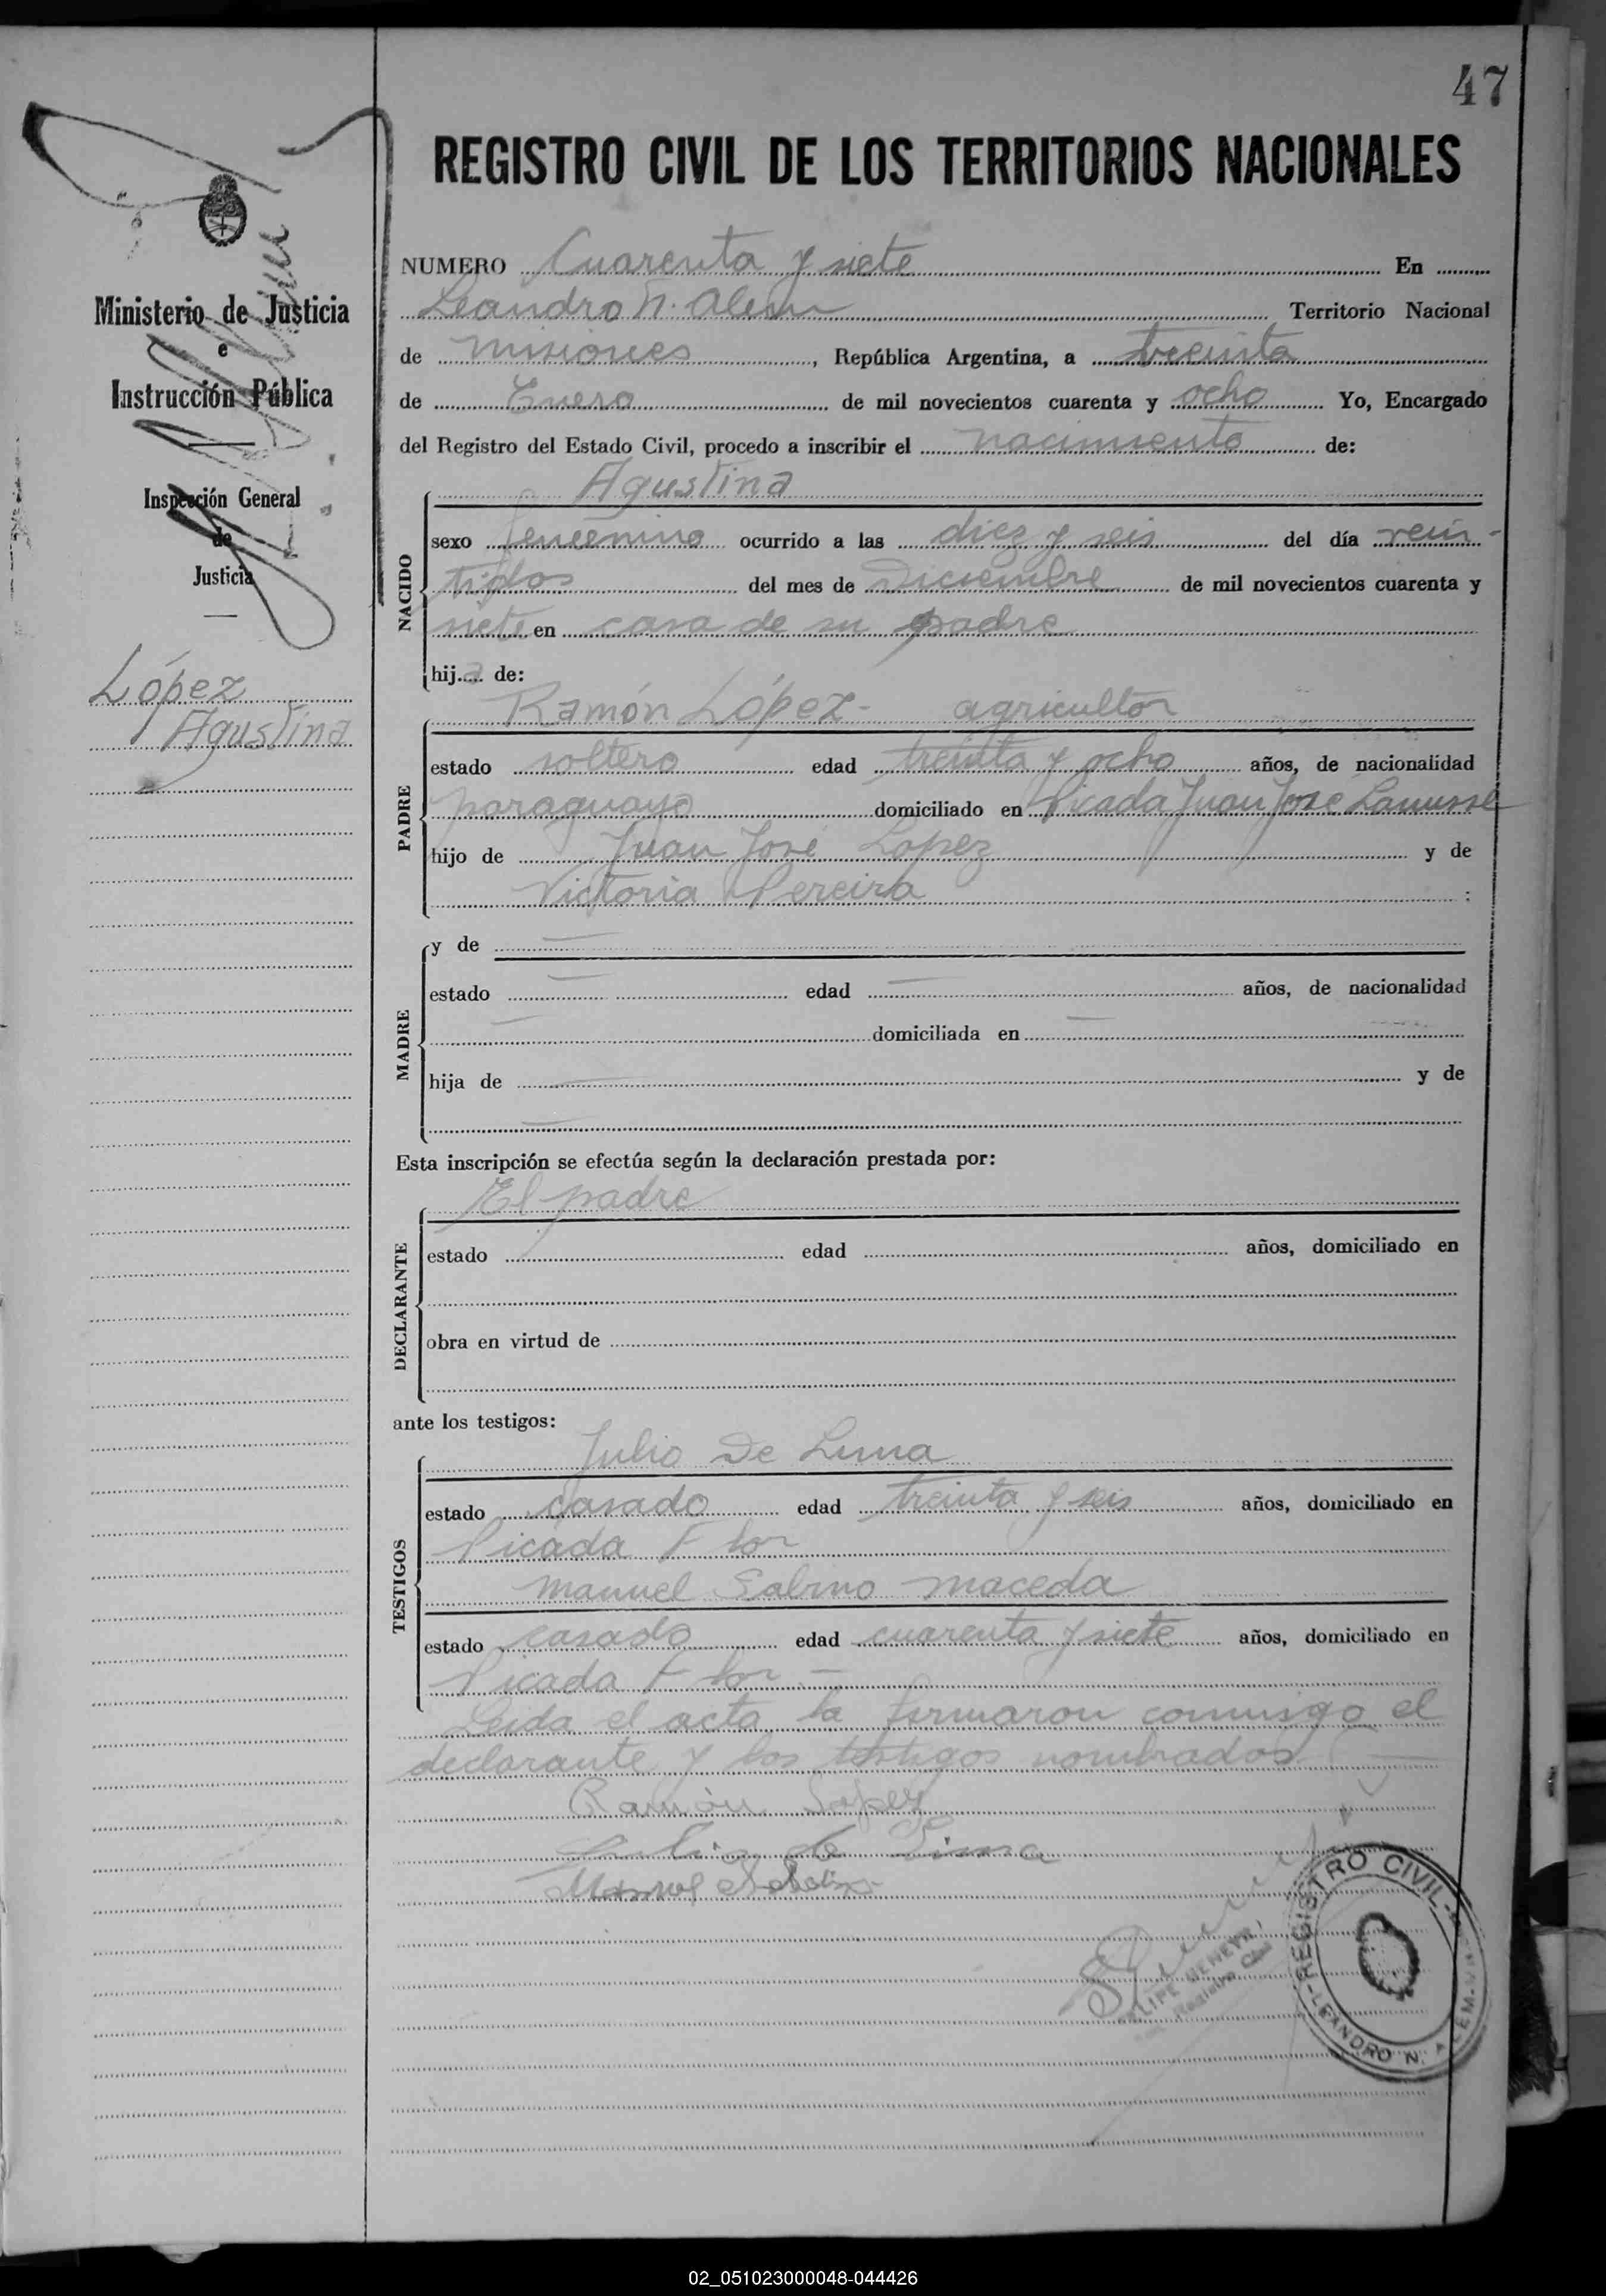 47
REGISTRO CIVIL DE LOS TERRITORIOS NACIONALES
Ministerio de Justicia
e
Instrucción Pública
Inspección General
de
Justicia
López
Agustina
NUMERO Cuarenta y siete En
Leandro N. Alem Territorio Nacional
de Misiones, República Argentina, a treinta
de Enero de mil novecientos cuarenta y ocho Yo, Encargado
del Registro del Estado Civil, procedo a inscribir el nacimiento de:
NACIDO
Agustina
sexo femenino ocurrido a las diez y seis del día vein-
tidos del mes de Diciembre de mil novecientos cuarenta y
siete en casa de su padre
hija de:
PADRE
Ramón López- agricultor
estado soltero edad treinta y ocho años, de nacionalidad
paraguayo domiciliado en Picada Juan José Lanusse
hijo de Juan José Lopez y de
Victoria Pereira ;
MADRE
y de —
estado — edad — años, de nacionalidad
— domiciliada en —
hija de — y de
—
Esta inscripción se efectúa según la declaración prestada por:
DECLARANTE
El padre
estado edad años, domiciliado en
obra en virtud de
ante los testigos:
TESTIGOS
Julio De Lima
estado casado edad treinta y seis años, domiciliado en
Picada Flor
Manuel Sabino Maceda
estado casado edad cuarenta y siete años, domiciliado en
Picada Flor —
Leida el acta la firmaron conmigo el
declarante y los testigos nombrados.
Ramón Lopez
Julio de Lima
Manuel
REGISTRO CIVIL
LEANDRO N. ALEM
02_051023000048-044426